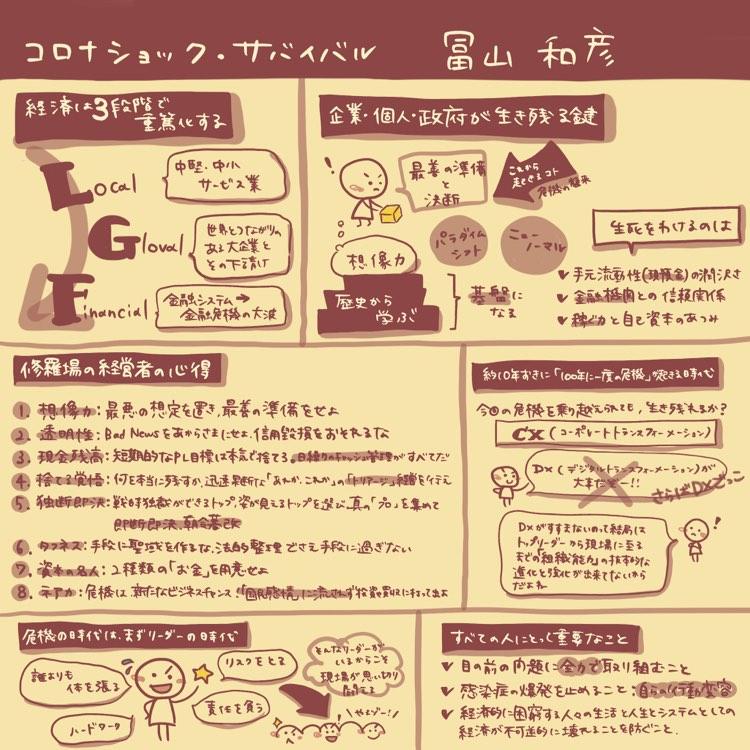 コロナショック・サバイバル 冨山 和彦
経済は3段階で
重篤化する
Local
中堅・中小
サービス業
Gloval
世界とつながりの
ある大企業と
その下請け
Financial
金融システム→
金融危機の大波
企業・個人・政府が生き残る鍵
最善の準備
と
決断
これから
起きるコト
危機の襲来
想像力
パラダイム
シフト
ニュー
ノーマル
歴史から
学ぶ
基盤に
なる
生死をわけるのは
✓手元流動性(現預金)の潤沢さ
✓金融機関との信頼関係
✓稼ぐ力と自己資本のあつみ
修羅場の経営者の心得
①想像力:最悪の想定を置き、最善の準備をせよ
②透明性:Bad Newsをあからさまにせよ、信用毀損をおそれるな
③現金残高:短期的なPL目標は本気で捨てる。日繰りのキャッシュ管理がすべてだ
④捨てる覚悟:何を本当に残すか、迅速果断な「あれか、これか」の「トリアージ」経営を行え
⑤独断即決:戦時独裁ができるトップ、姿が見えるトップを選び、真の「プロ」を集めて
即断即決、朝令暮改
⑥タフネス:手段に聖域を作るな、法的整理でさえ手段に過ぎない
⑦資本の名人:2種類の「お金」を用意せよ
⑧ネアカ:危機は、新たなビジネスチャンス!「国民感情」に流されず投資や買収に打って出よ
約10年おきに「100年に一度の危機」が起きる時代
今回の危機を乗り越えられても、生き残れるか?
CX(コーポレートトランスフォーメーション)
DX(デジタルトランスフォーメーション)が
大事だぞー!!
さらばDXごっこ
DXがすすまないのって結局は
トップリーダーから現場に至る
までの「組織能力」の抜本的な
進化と強化が出来てないから
だよね
危機の時代は、まずリーダーの時代
誰よりも
体を張る
ハードワーク
リスクをとる
責任を負う
そんなリーダーが
いるからこそ
現場が思い切り
闘える
やるゾー!
すべての人にとって重要なこと
✓目の前の問題に全力で取り組むこと
✓感染症の爆発を止めること:自らの行動変容
✓経済的に困窮する人々の生活と人生とシステムとしての
経済が不可逆的に壊れることを防ぐこと。